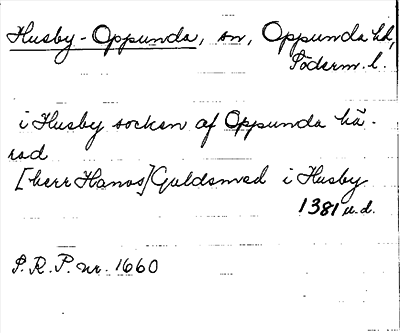 Husby-Oppunda, sn, Oppunda hd,
Söderm. l.
i Husby socken af Oppunda hä-
rad
[herr Hanos] Guldsmed i Husby
1381 u.d.
S.R.P. nr. 1660